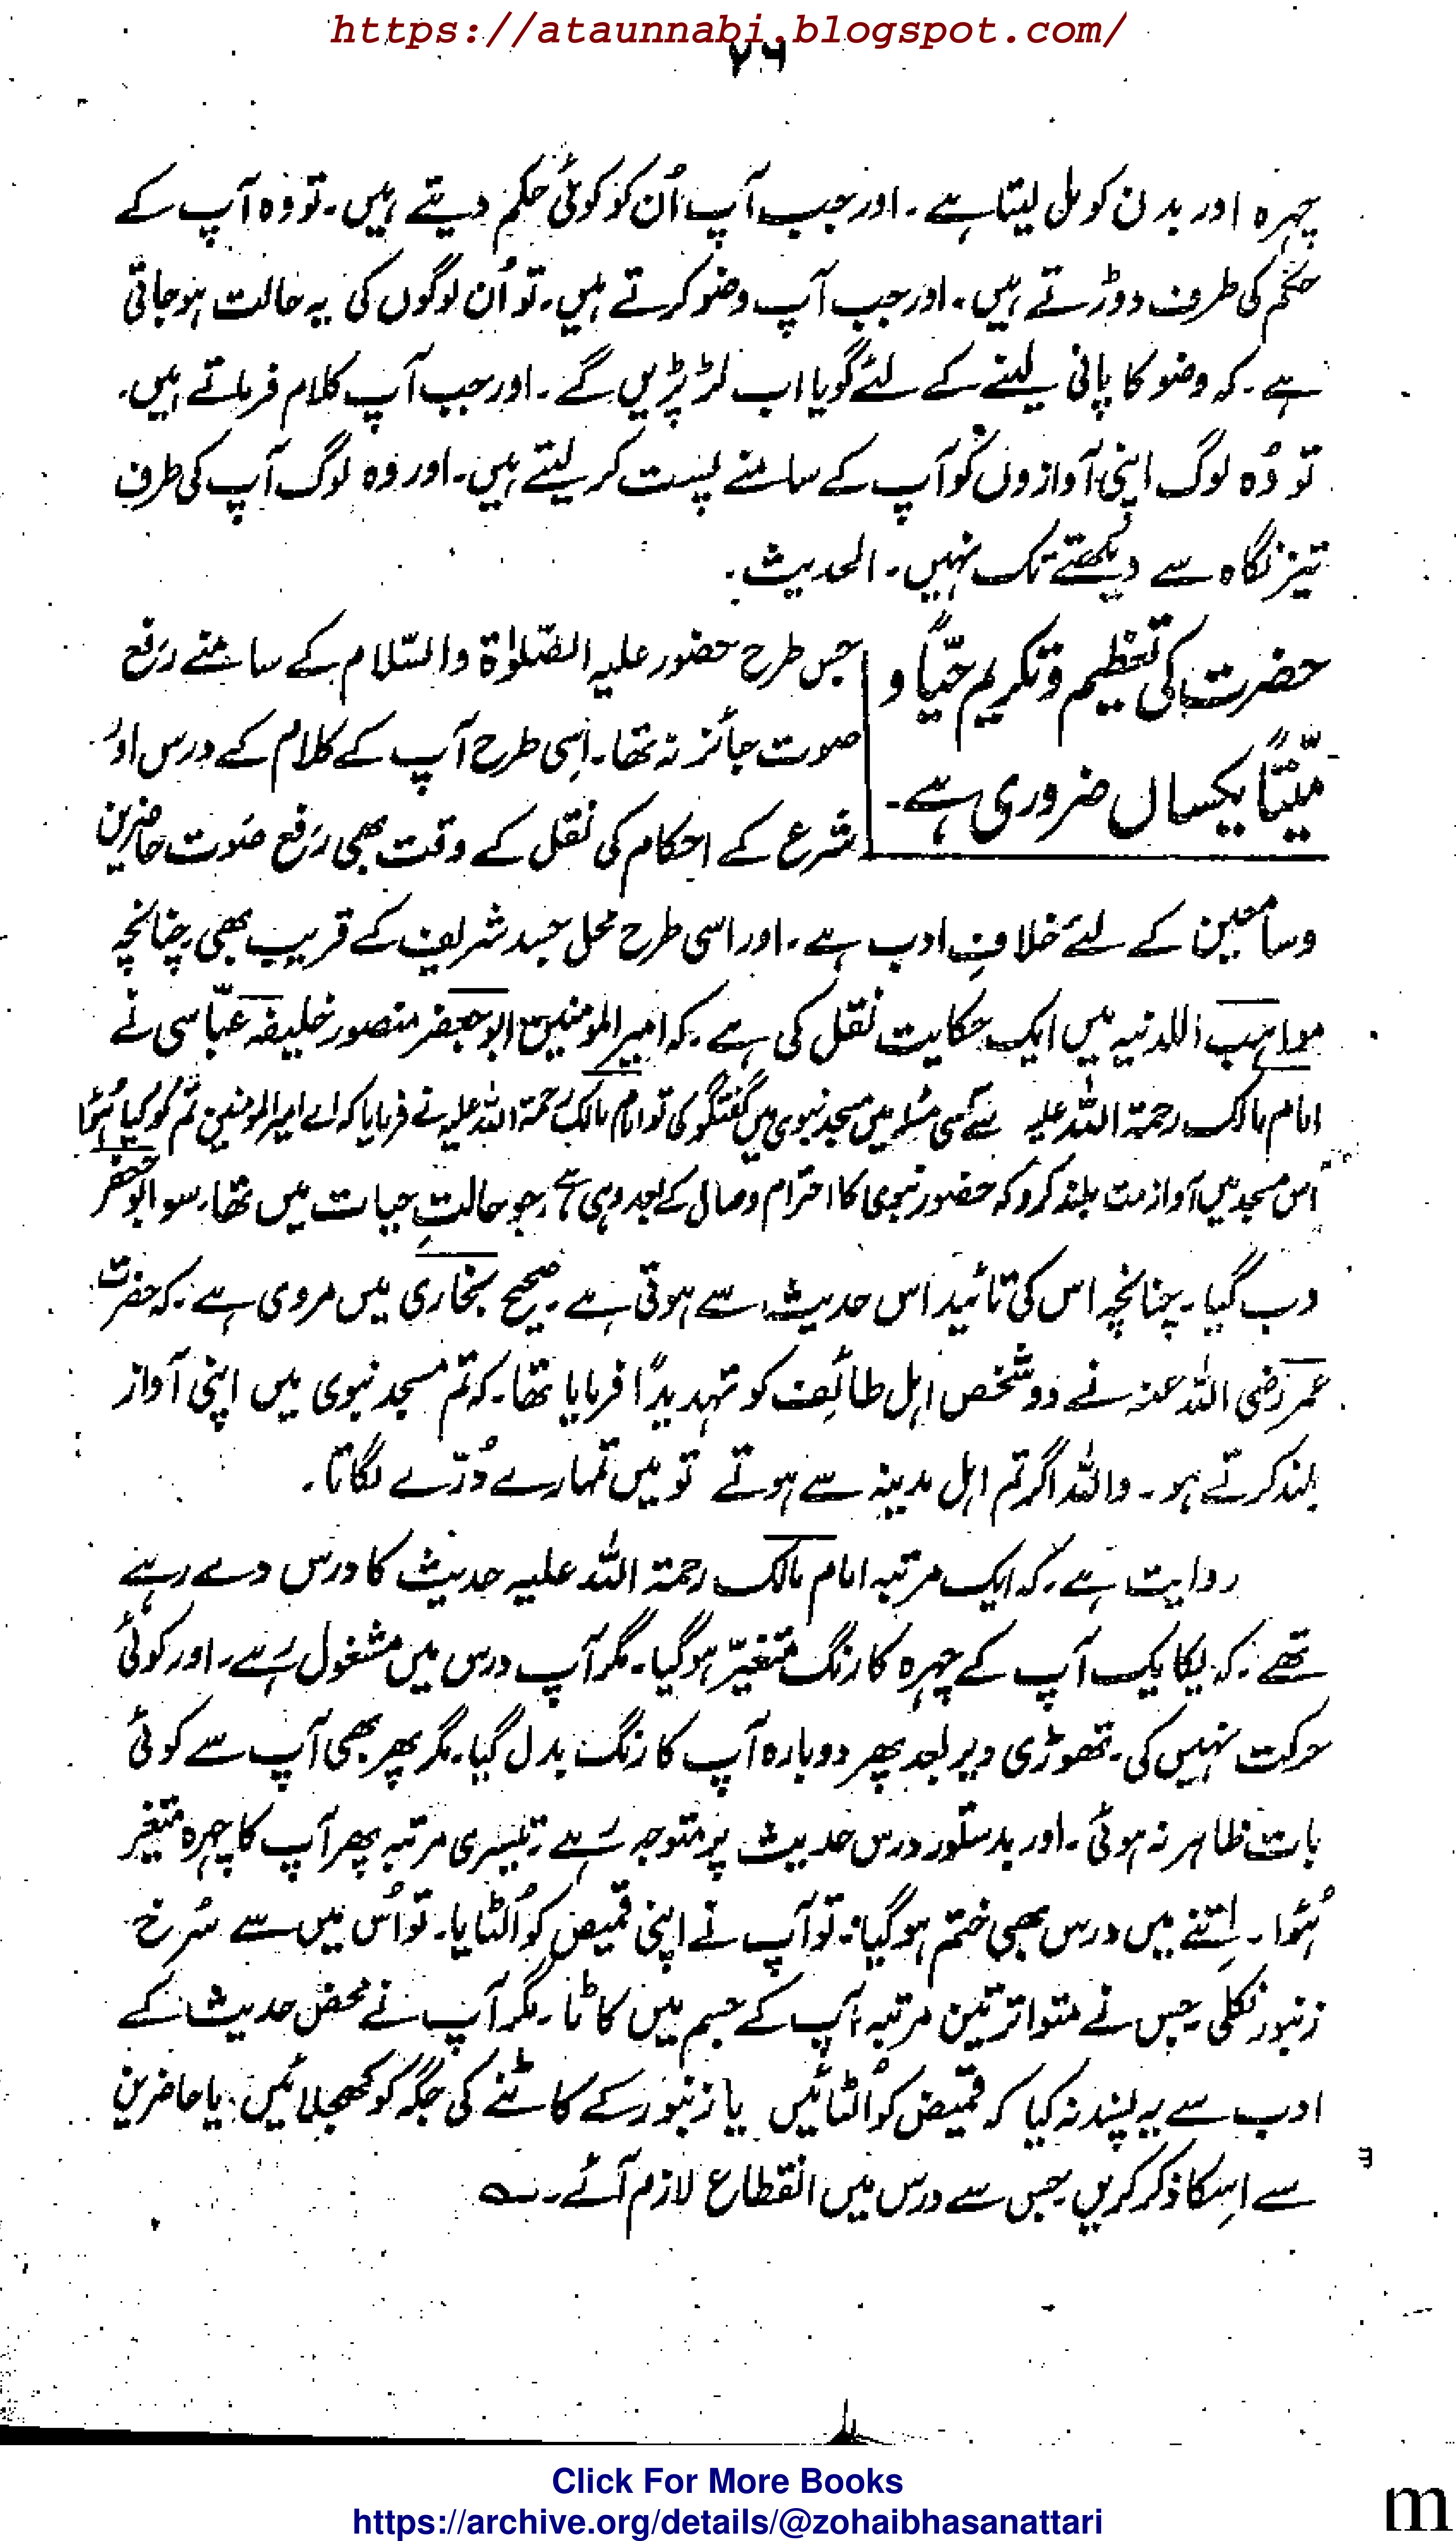 https://ataunnabi.blogspot.com/
۷۶
چہرہ اور بدن کو مل لیتا ہے۔ اور جب آپ اُن کو کوئی حکم دیتے ہیں۔ تو وہ آپ کے
حکم کی طرف دوڑتے ہیں۔ اور جب آپ وضو کرتے ہیں۔ تو اُن لوگوں کی یہ حالت ہو جاتی
ہے۔ کہ وضو کا پانی لینے کے لئے گویا اب لڑ پڑیں گے۔ اور جب آپ کلام فرماتے ہیں۔
تو وُہ لوگ اپنی آوازوں کو آپ کے سامنے پست کر لیتے ہیں۔ اور وہ لوگ آپ کی طرف
تیز نگاہ سے دیکھتے تک نہیں۔ الحدیث۔
حضرت کی تعظیم و تکریم حیًّا و
میّتًا یکساں ضروری ہے۔
جس طرح حضور علیہ الصّلوٰۃ والسّلام کے سامنے رَفع
صوت جائز نہ تھا۔ اِسی طرح آپ کے کلام کے درس اور
شرع کے احکام کی نقل کے وقت بھی رَفع صَوت حاضرین
وسامعین کے لئے خلافِ ادب ہے۔ اور اسی طرح محل جسد شریف کے قریب بھی چنانچہ
مواہب اللدنیہ میں ایک حکایت نقل کی ہے۔ کہ امیر المومنین ابو جعفر منصور خلیفہ عبّاسی نے
امام مالک رحمۃ اللہ علیہ سے کسی مسٔلہ میں مسجد نبوی میں گفتگو کی تو امام مالک رحمۃ اللہ علیہ نے فرمایا کہ اے امیر المومنین تم کو کیا ہُوا
اس مسجد میں آواز مت بلند کرو کہ حضور نبوی کا احترام وصال کے بعد وہی ہے جو حالتِ حیات میں تھا۔ سو ابو جعفر
دب گیا۔ چنانچہ اس کی تائید اس حدیث سے ہوتی ہے۔ صحیح بخاری میں مروی ہے۔ کہ حضرت
عمر رَضی اللہ عنہ نے دو شخص اہل طائف کو تہدیدًا فرمایا تھا۔ کہ تم مسجد نبوی میں اپنی آواز
بلند کرتے ہو۔ واللہ اگر تم اہل مدینہ سے ہوتے تو میں تمہارے دُرّے لگاتا۔
روایت ہے۔ کہ ایک مرتبہ امام مالک رحمۃ اللہ علیہ حدیث کا درس دے رہے
تھے۔ کہ یکایک آپ کے چہرہ کا رنگ متغیّر ہو گیا۔ مگر آپ درس میں مشغول رَہے۔ اور کوئی
حرکت نہیں کی۔ تھوڑی دیر بعد پھر دوبارہ آپ کا رنگ بدل گیا۔ مگر پھر بھی آپ سے کوئی
بات ظاہر نہ ہوئی۔ اور بدستور درس حدیث پر متوجہ رَہے تیسری مرتبہ پھر آپ کا چہرہ متغیر
ہُوا۔ اِتنے میں درس بھی ختم ہو گیا۔ تو آپ نے اپنی قمیض کو اُلٹایا۔ تو اُس میں سے سُرخ
زنبور نکلی جس نے متواتر تین مرتبہ آپ کے جسم میں کاٹا۔ مگر آپ نے محض حدیث کے
ادب سے یہ پسند نہ کیا کہ قمیض کو اُلٹائیں یا زنبور کے کاٹنے کی جگہ کو کھجلائیں۔ یا حاضرین
سے اسکا ذکر کریں جس سے درس میں انقطاع لازم آئے۔
Click For More Books
https://archive.org/details/@zohaibhasanattari
m